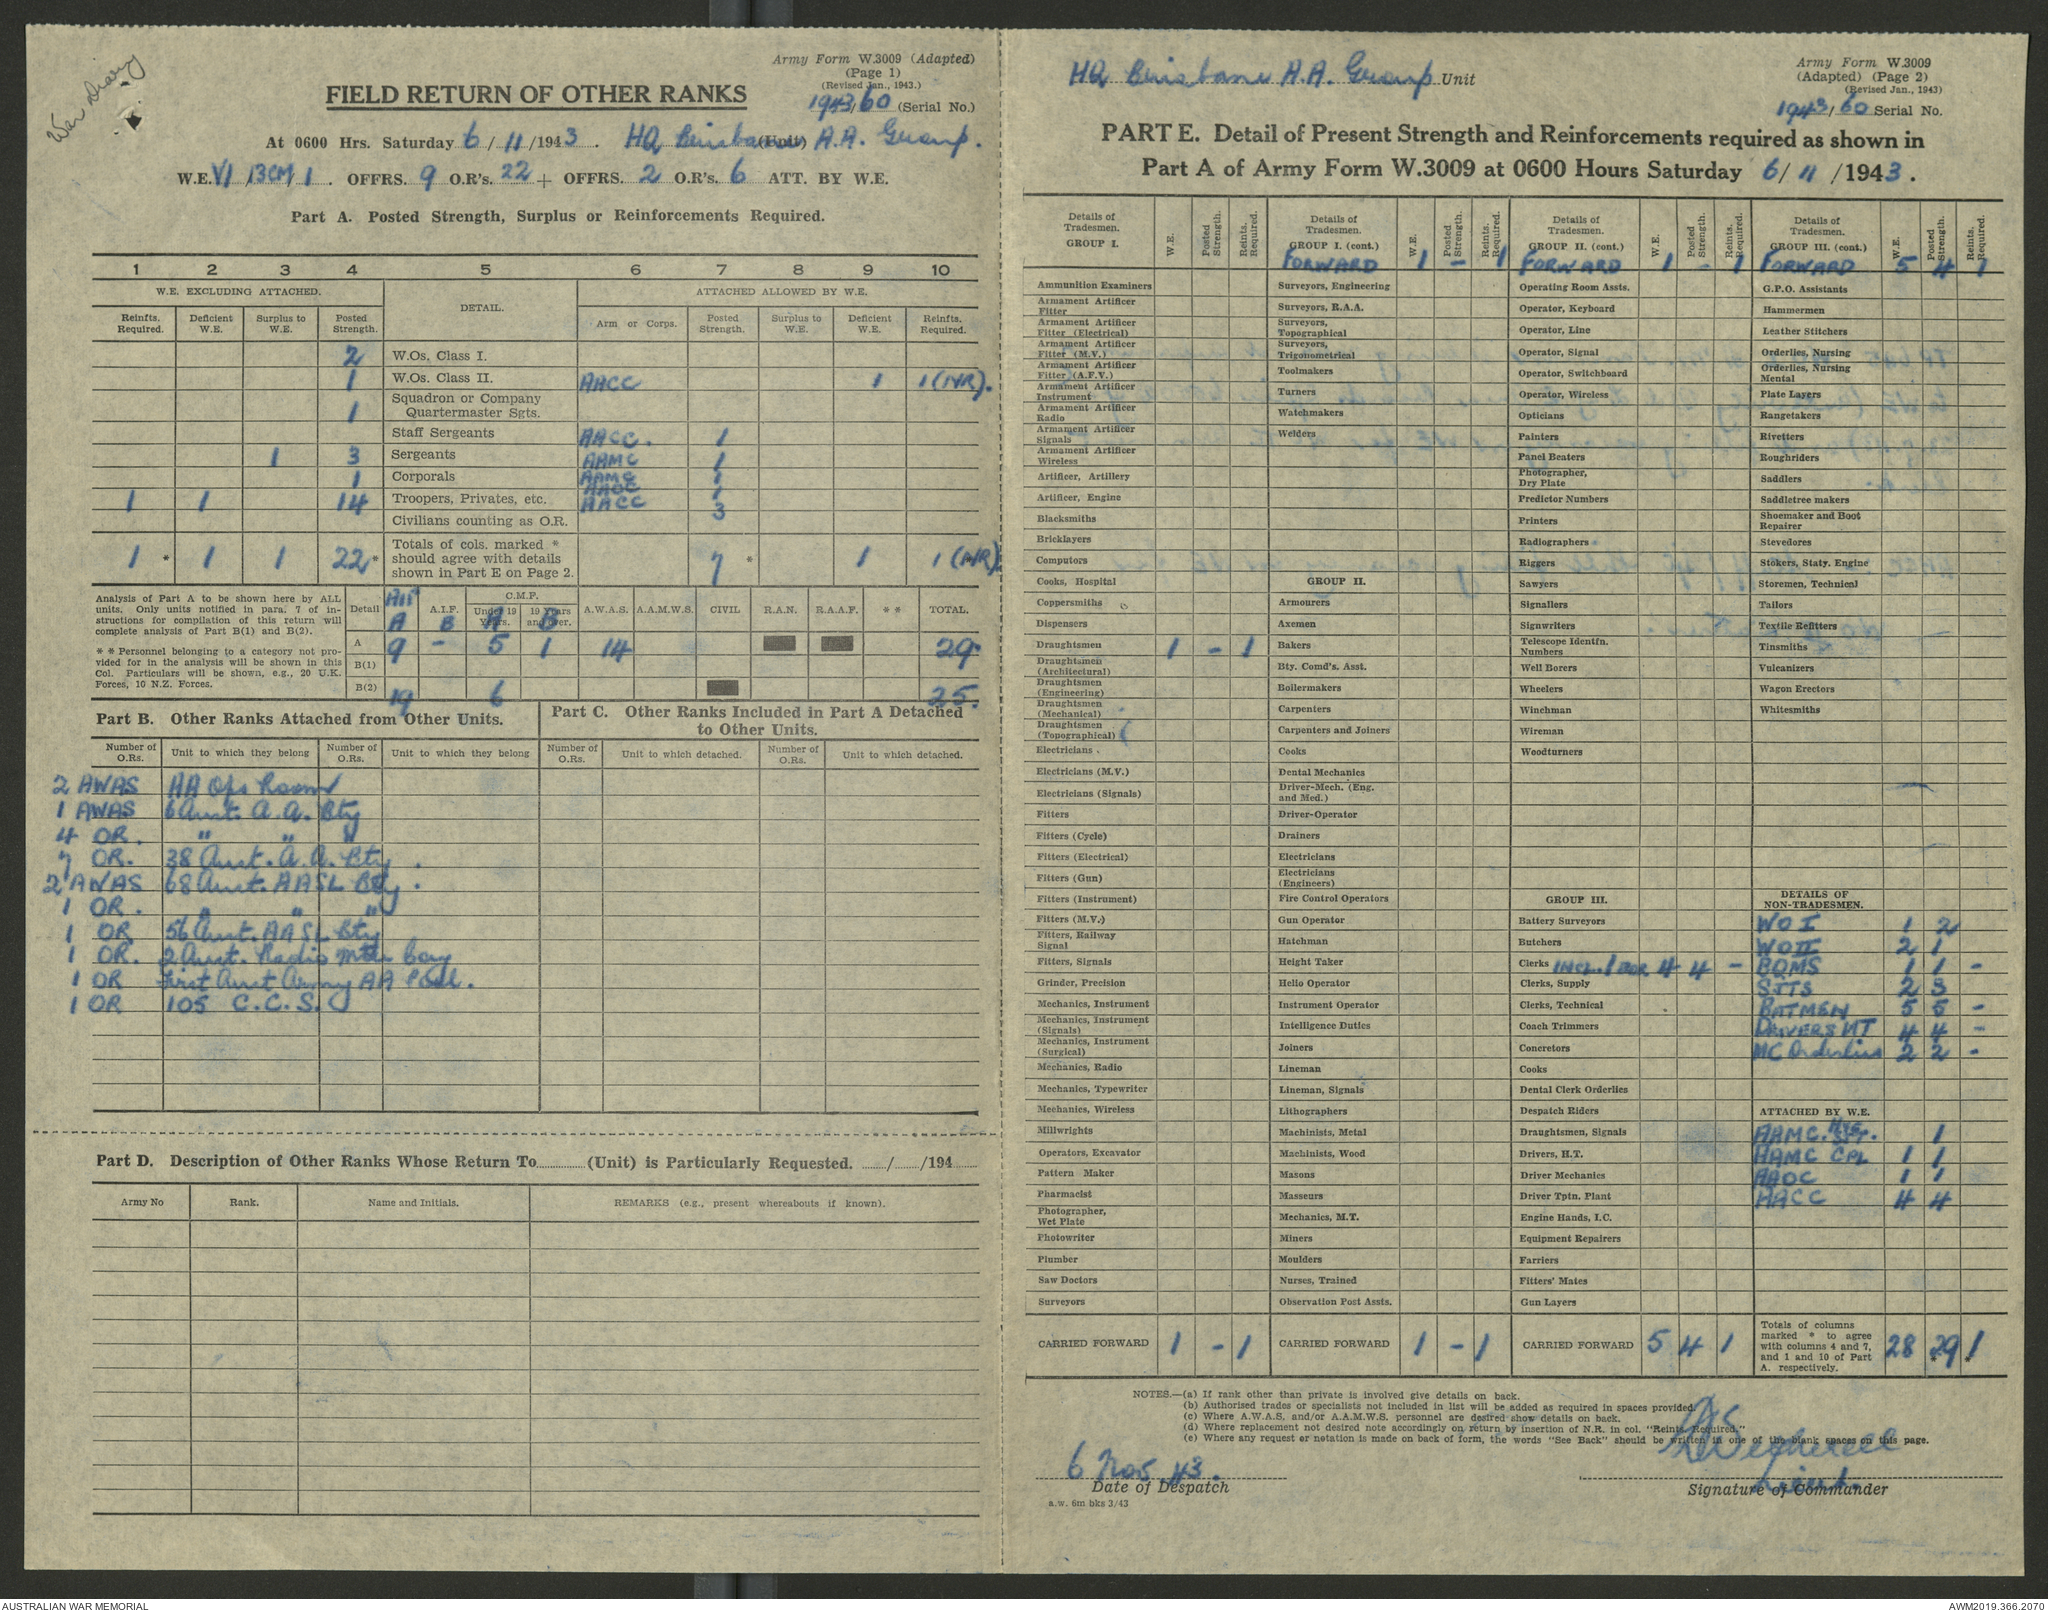 War Diary
Army Form W.3009 (Adapted)
(Page 1)
(Revised Jan., 1943.)
FIELD RETURN OF OTHER RANKS
1943/60 (Serial No.)
At 0600 Hrs. Saturday 6/11/1943. HQ Brisbane A.A. Group. (Unit)
W.E. VI 13CM 1. OFFRS. 9 O.R's. 22 + OFFRS. 2 O.R's. 6 ATT. BY W.E.
Part A. Posted Strength, Surplus or Reinforcements Required.
1 2 3 4 5 6 7 8 9 10
W.E. EXCLUDING ATTACHED. DETAIL. ATTACHED ALLOWED BY W.E.
Reinfts. Required. Deficient W.E. Surplus to W.E. Posted Strength. Arm or Corps. Posted Strength. Surplus to W.E. Deficient W.E. Reinfts. Required.
2 W.Os. Class I.
1 W.Os. Class II. AACC 1 1 (NR).
1 Squadron or Company Quartermaster Sgts.
Staff Sergeants AACC. 1
1 3 Sergeants AAMC 1
1 Corporals AAMC
AAOC 1
1 1 14 Troopers, Privates, etc. AACC 3
Civilians counting as O.R.
1 * 1 1 22 * Totals of cols. marked * should agree with details shown in Part E on Page 2. 7 * 1 1 (NR).
Analysis of Part A to be shown here by ALL units. Only units notified in para. 7 of instructions for compilation of this return will complete analysis of Part B(1) and B(2).
* * Personnel belonging to a category not provided for in the analysis will be shown in this Col. Particulars will be shown, e.g., 20 U.K. Forces, 10 N.Z. Forces.
Detail AIF A A.I.F. B C.M.F. Under 19 Years. A 19 Years and over. B A.W.A.S. A.A.M.W.S. CIVIL R.A.N. R.A.A.F. * * TOTAL.
A 9 - 5 1 14 29.
B(1)
B(2) 19 6 25.
Part B. Other Ranks Attached from Other Units.
Part C. Other Ranks Included in Part A Detached to Other Units.
Number of O.Rs. Unit to which they belong Number of O.Rs. Unit to which they belong Number of O.Rs. Unit to which detached. Number of O.Rs. Unit to which detached.
2 AWAS AA Ops Room
1 AWAS 6 Aust. A.A. Bty
4 OR. " " "
7 OR. 38 Aust. A.A. Bty.
2 AWAS 68 Aust. AASL Bty.
1 OR. " " "
1 OR 56 Aust. AASL Bty
1 OR. 2 Aust. Radio Mtce Coy
1 OR First Aust Army AA Pool.
1 OR 105 C.C.S.
Part D. Description of Other Ranks Whose Return To (Unit) is Particularly Requested. / /194
Army No Rank. Name and Initials. REMARKS (e.g., present whereabouts if known).
HQ Brisbane A.A. Group Unit
Army Form W.3009
(Adapted) (Page 2)
(Revised Jan., 1943)
1943/60 Serial No.
PART E. Detail of Present Strength and Reinforcements required as shown in
Part A of Army Form W.3009 at 0600 Hours Saturday 6/11/1943.
Details of Tradesmen. GROUP I. W.E. Posted Strength. Reints. Required.
Ammunition Examiners
Armament Artificer Fitter
Armament Artificer Fitter (Electrical)
Armament Artificer Fitter (M.V.)
Armament Artificer Fitter (A.F.V.)
Armament Artificer Instrument
Armament Artificer Radio
Armament Artificer Signals
Armament Artificer Wireless
Artificer, Artillery
Artificer, Engine
Blacksmiths
Bricklayers
Computors
Cooks, Hospital
Coppersmiths
Dispensers
Draughtsmen 1 - 1
Draughtsmen (Architectural)
Draughtsmen (Engineering)
Draughtsmen (Mechanical)
Draughtsmen (Topographical)
Electricians
Electricians (M.V.)
Electricians (Signals)
Fitters
Fitters (Cycle)
Fitters (Electrical)
Fitters (Gun)
Fitters (Instrument)
Fitters (M.V.)
Fitters, Railway Signal
Fitters, Signals
Grinder, Precision
Mechanics, Instrument
Mechanics, Instrument (Signals)
Mechanics, Instrument (Surgical)
Mechanics, Radio
Mechanics, Typewriter
Mechanics, Wireless
Millwrights
Operators, Excavator
Pattern Maker
Pharmacist
Photographer, Wet Plate
Photowriter
Plumber
Saw Doctors
Surveyors
CARRIED FORWARD 1 - 1
Details of Tradesmen. GROUP I. (cont.) W.E. Posted Strength. Reints. Required.
FORWARD 1 - 1
Surveyors, Engineering
Surveyors, R.A.A.
Surveyors, Topographical
Surveyors, Trigonometrical
Toolmakers
Turners
Watchmakers
Welders
GROUP II.
Armourers
Axemen
Bakers
Bty. Comd's. Asst.
Boilermakers
Carpenters
Carpenters and Joiners
Cooks
Dental Mechanics
Driver-Mech. (Eng. and Med.)
Driver-Operator
Drainers
Electricians
Electricians (Engineers)
Fire Control Operators
Gun Operator
Hatchman
Height Taker
Helio Operator
Instrument Operator
Intelligence Duties
Joiners
Lineman
Lineman, Signals
Lithographers
Machinists, Metal
Machinists, Wood
Masons
Masseurs
Mechanics, M.T.
Miners
Moulders
Nurses, Trained
Observation Post Assts.
CARRIED FORWARD 1 - 1
Details of Tradesmen. GROUP II. (cont.) W.E. Posted Strength. Reints. Required.
FORWARD 1 - 1
Operating Room Assts.
Operator, Keyboard
Operator, Line
Operator, Signal
Operator, Switchboard
Operator, Wireless
Opticians
Painters
Panel Beaters
Photographer, Dry Plate
Predictor Numbers
Printers
Radiographers
Riggers
Sawyers
Signallers
Signwriters
Telescope Identfn. Numbers
Well Borers
Wheelers
Winchman
Wireman
Woodturners
GROUP III.
Battery Surveyors
Butchers
Clerks INCL. 1 BDR 4 4 -
Clerks, Supply
Clerks, Technical
Coach Trimmers
Concretors
Cooks
Dental Clerk Orderlies
Despatch Riders
Draughtsmen, Signals
Drivers, H.T.
Driver Mechanics
Driver Tptn. Plant
Engine Hands, I.C.
Equipment Repairers
Farriers
Fitters' Mates
Gun Layers
CARRIED FORWARD 5 4 1
Details of Tradesmen. GROUP III. (cont.) W.E. Posted Strength. Reints. Required.
FORWARD 5 4 1
G.P.O. Assistants
Hammermen
Leather Stitchers
Orderlies, Nursing
Orderlies, Nursing Mental
Plate Layers
Rangetakers
Rivetters
Roughriders
Saddlers
Saddletree makers
Shoemaker and Boot Repairer
Stevedores
Stokers, Staty. Engine
Storemen, Technical
Tailors
Textile Refitters
Tinsmiths
Vulcanizers
Wagon Erectors
Whitesmiths
DETAILS OF NON-TRADESMEN.
WO I 1 2
WO II 2 1
BQMS 1 1 -
SJTS 2 3
BATMEN 5 5 -
DRIVERS MT 4 4 -
MC Orderlies 2 2 -
ATTACHED BY W.E.
AAMC. HYG. SJT. 1
AAMC CPL 1 1
AAOC 1 1
AACC 4 4
Totals of columns marked * to agree with columns 4 and 7, and 1 and 10 of Part A. respectively. 28 29* 1*
NOTES.—(a) If rank other than private is involved give details on back.
(b) Authorised trades or specialists not included in list will be added as required in spaces provided.
(c) Where A.W.A.S. and/or A.A.M.W.S. personnel are desired show details on back.
(d) Where replacement not desired note accordingly on return by insertion of N.R. in col. "Reints. Required."
(e) Where any request or notation is made on back of form, the words "See Back" should be written in one of the blank spaces on this page.
6 Nov 43.
Date of Despatch
Lieut.
Signature of Commander
a.w. 6m bks 3/43
AUSTRALIAN WAR MEMORIAL
AWM2019.366.2070